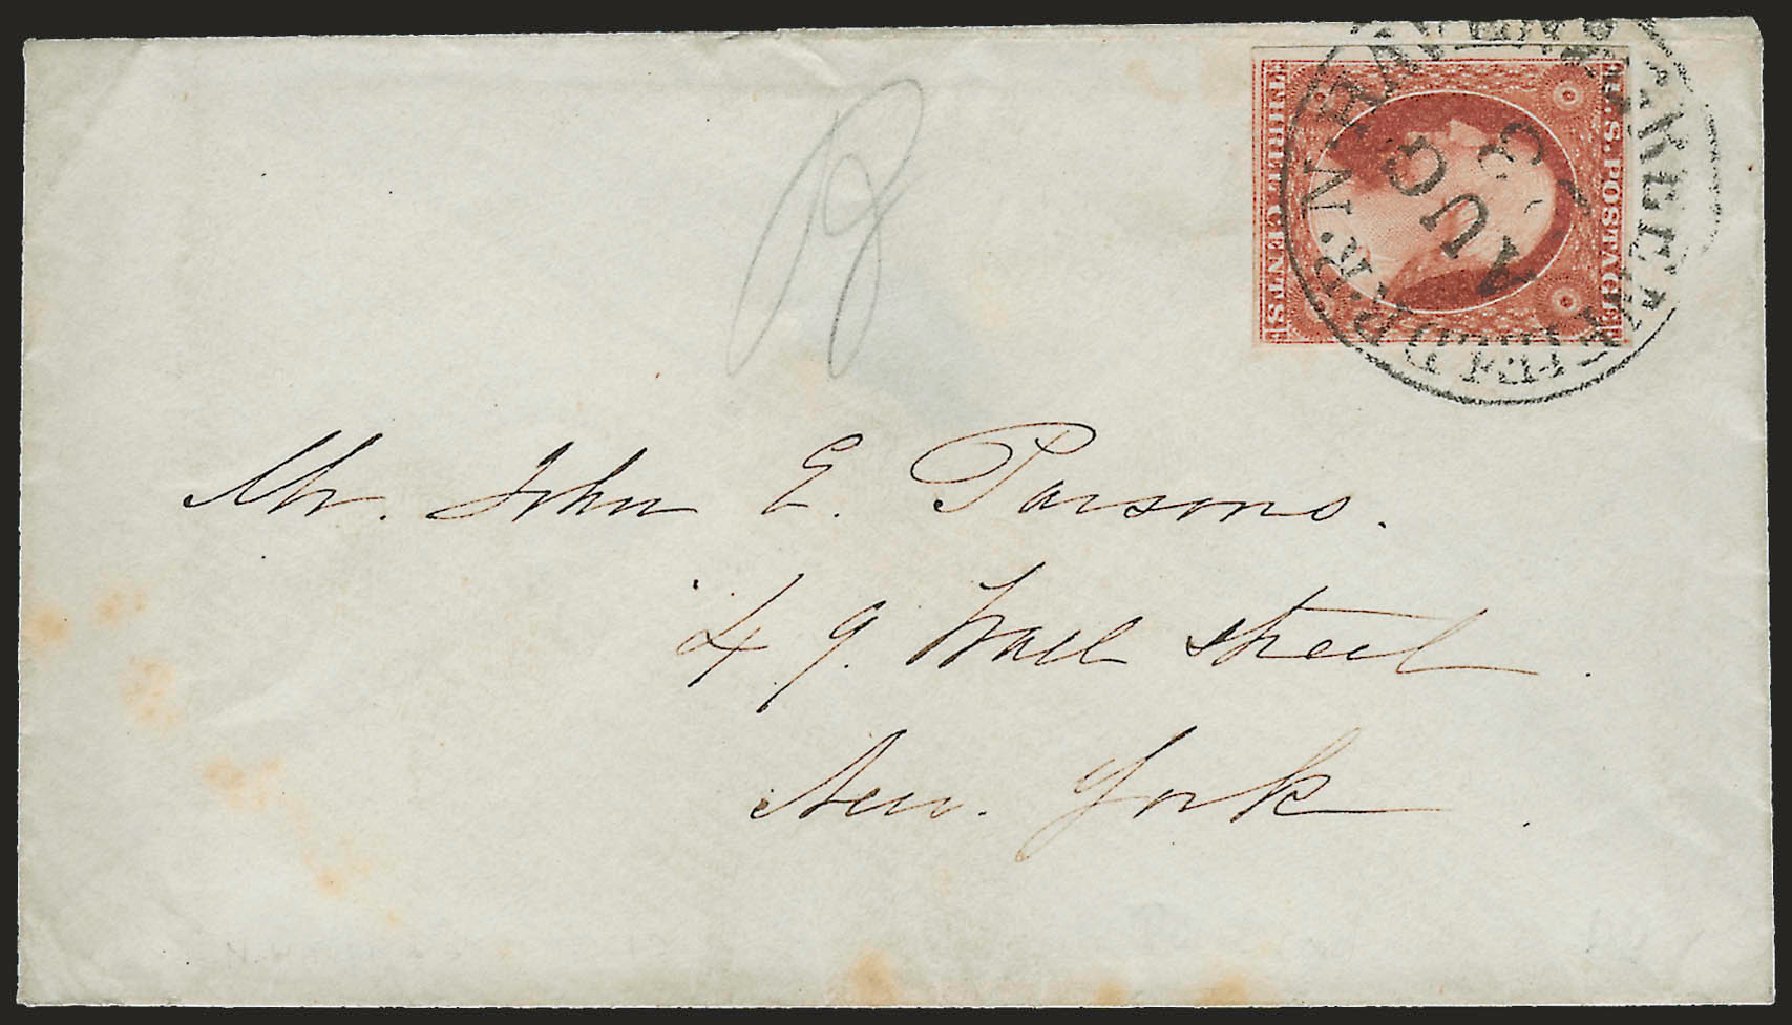 U.S. POSTAGE
THREE CENTS
N. HAVEN & GREENFIELD R.R.
AUG
Mr. John E. Parsons.
49. Wall Street.
New. York.